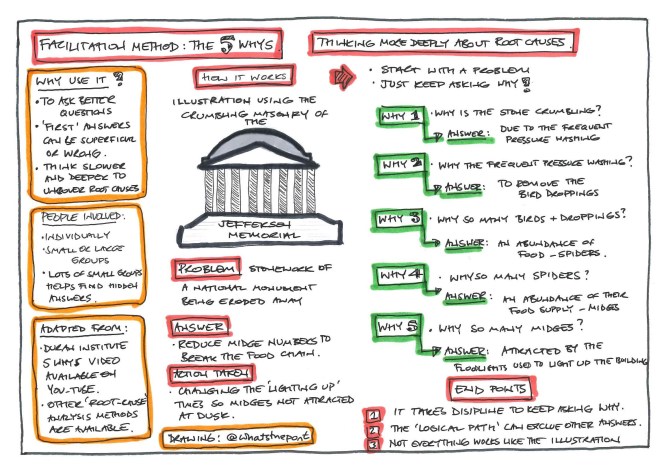 FACILITATION METHOD: THE 5 WHYS
THINKING MORE DEEPLY ABOUT ROOT CAUSES.
WHY USE IT ?
• TO ASK BETTER
QUESTIONS
• 'FIRST' ANSWERS
CAN BE SUPERFICIAL
OR WRONG.
• THINK SLOWER
AND DEEPER TO
UNCOVER ROOT CAUSES
PEOPLE INVOLVED:
• INDIVIDUALLY
• SMALL OR LARGE
GROUPS
• LOTS OF SMALL GROUPS
HELPS FIND HIDDEN
ANSWERS.
ADAPTED FROM:
• JURAN INSTITUTE
5 WHYS VIDEO
AVAILABLE ON
YOU-TUBE.
• OTHER 'ROOT-CAUSE'
ANALYSIS METHODS
ARE AVAILABLE.
HOW IT WORKS
ILLUSTRATION USING THE
CRUMBLING MASONRY OF
THE
JEFFERSON
MEMORIAL
PROBLEM STONEWORK OF
A NATIONAL MONUMENT
BEING ERODED AWAY
ANSWER
• REDUCE MIDGE NUMBERS TO
BREAK THE FOOD CHAIN.
ACTION TAKEN
• CHANGING THE 'LIGHTING UP'
TIMES SO MIDGES NOT ATTRACTED
AT DUSK.
DRAWING: @whatsthepont
• START WITH A PROBLEM
• JUST KEEP ASKING WHY ?
WHY 1 • WHY IS THE STONE CRUMBLING?
ANSWER: DUE TO THE FREQUENT
PRESSURE WASHING
WHY 2 • WHY THE FREQUENT PRESSURE WASHING?
ANSWER: TO REMOVE THE
BIRD DROPPINGS
WHY 3 • WHY SO MANY BIRDS + DROPPINGS?
ANSWER: AN ABUNDANCE OF
FOOD - SPIDERS.
WHY 4 • WHY SO MANY SPIDERS?
ANSWER: AN ABUNDANCE OF THEIR
FOOD SUPPLY - MIDGES
WHY 5 • WHY SO MANY MIDGES?
ANSWER: ATTRACTED BY THE
FLOODLIGHTS USED TO LIGHT UP THE BUILDING
END POINTS
1 IT TAKES DISCIPLINE TO KEEP ASKING WHY.
2 THE 'LOGICAL PATH' CAN EXCLUDE OTHER ANSWERS.
3 NOT EVERYTHING WORKS LIKE THE ILLUSTRATION